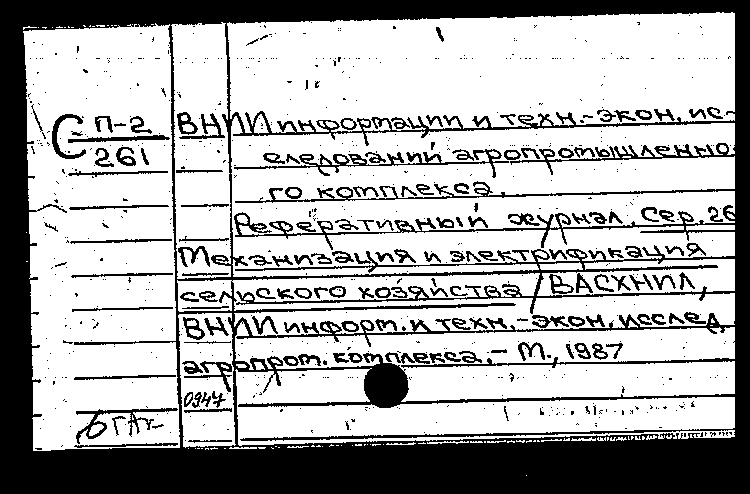 С П-2
261
ВНИИ информации и техн.-экон. ис-
следований агропромышленно
го комплекса.
Реферативный журнал. Сер. 26
Механизация и электрификация
сельского хозяйства / ВАСХНИЛ,
ВНИИ информ. и техн.-экон. исслед.
агропром. комплекса. - М., 1987
0947